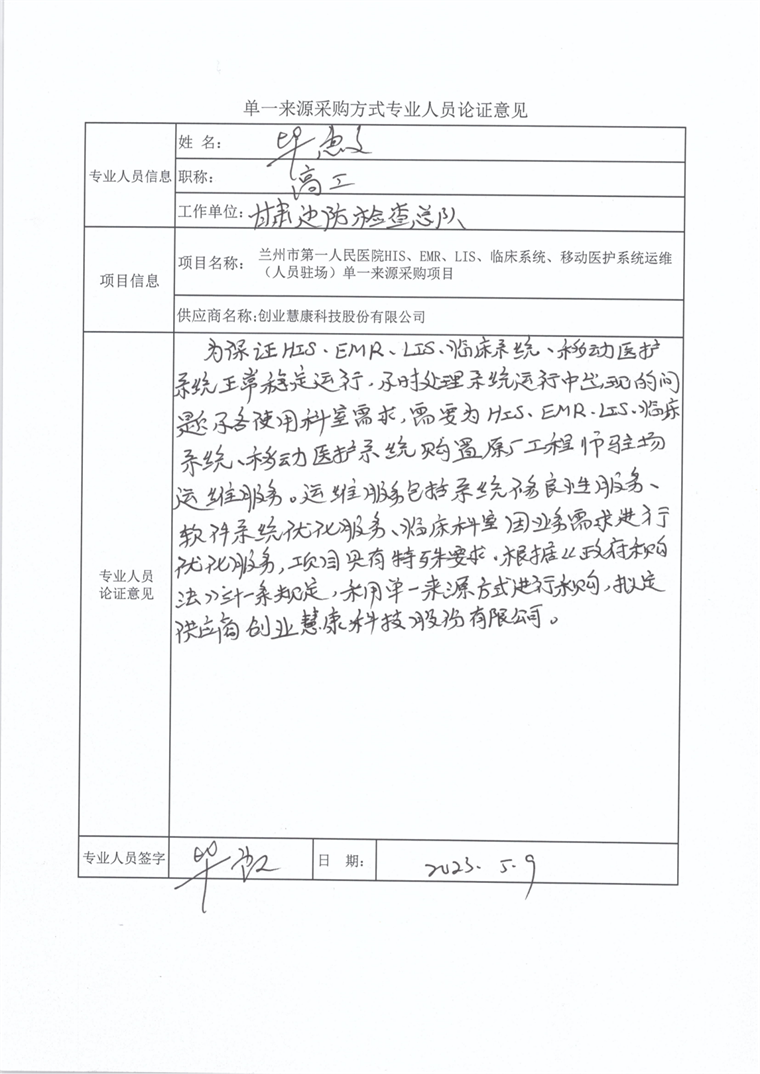 单一来源采购方式专业人员论证意见
专业人员信息
姓 名: 毕
职称: 高工
工作单位: 甘肃边防检查总队
项目信息
项目名称: 兰州市第一人民医院HIS、EMR、LIS、临床系统、移动医护系统运维
（人员驻场）单一来源采购项目
供应商名称:创业慧康科技股份有限公司
专业人员
论证意见
为保证HIS、EMR、LIS、临床系统、移动医护
系统正常稳定运行,及时处理系统运行中出现的问
题及各使用科室需求,需要为HIS、EMR、LIS、临床
系统、移动医护系统购置原厂工程师驻场
运维服务。运维服务包括系统服务、
软件系统优化服务、临床科室因业务需求进行
优化服务,项目具有特殊要求.根据《政府采购
法》三十一条规定,采用单一来源方式进行采购,拟定
供应商创业慧康科技股份有限公司。
专业人员签字 毕
日 期: 2023.5.9